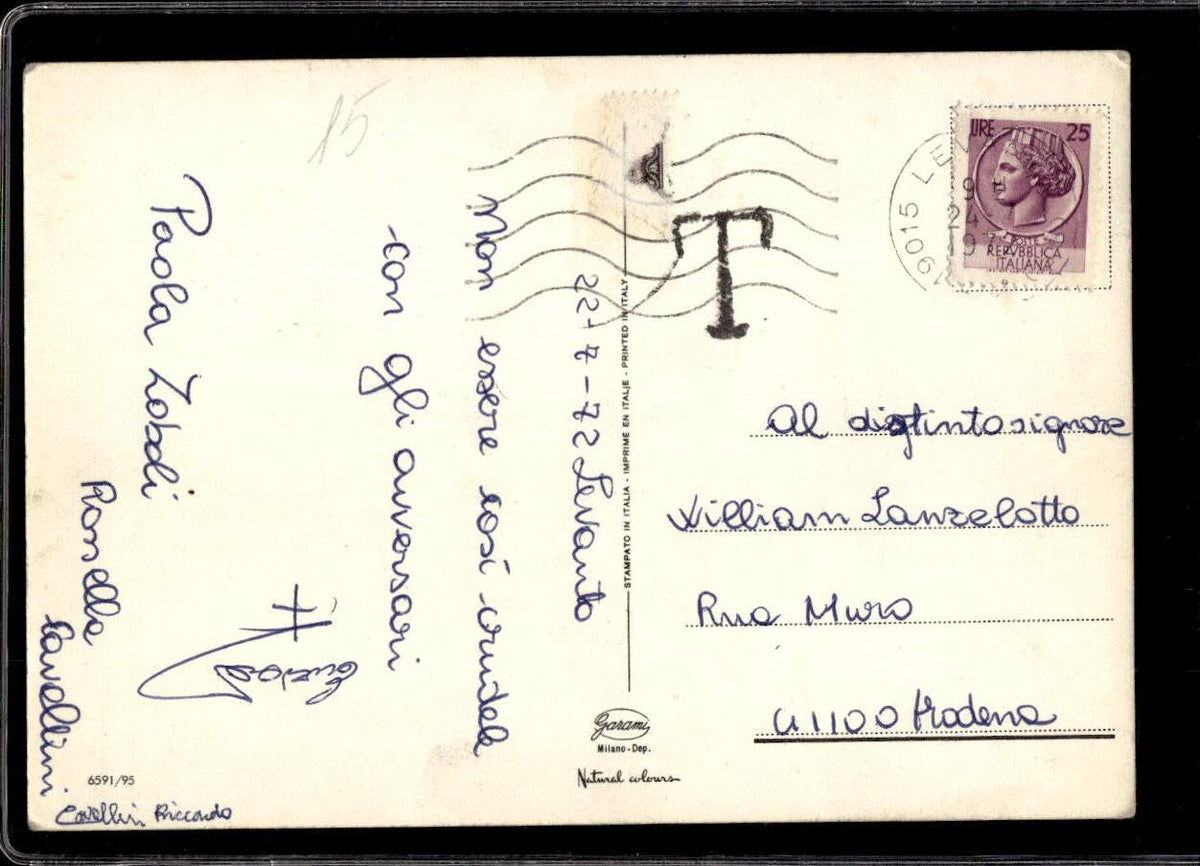 15
22-7-72 Levanto
Non essere così crudele
con gli avversari
Paola
Rossella
Cavallini
Cavallini Riccardo
T
LIRE 25
POSTE
REPVBBLICA
ITALIANA
19015 LEV
24
Al distinto signore
William Lanzelotto
Rua Muro
41100 Modena
STAMPATO IN ITALIA - IMPRIME EN ITALIE - PRINTED IN ITALY
Garami
Milano-Dep.
Natural colours
6591/95